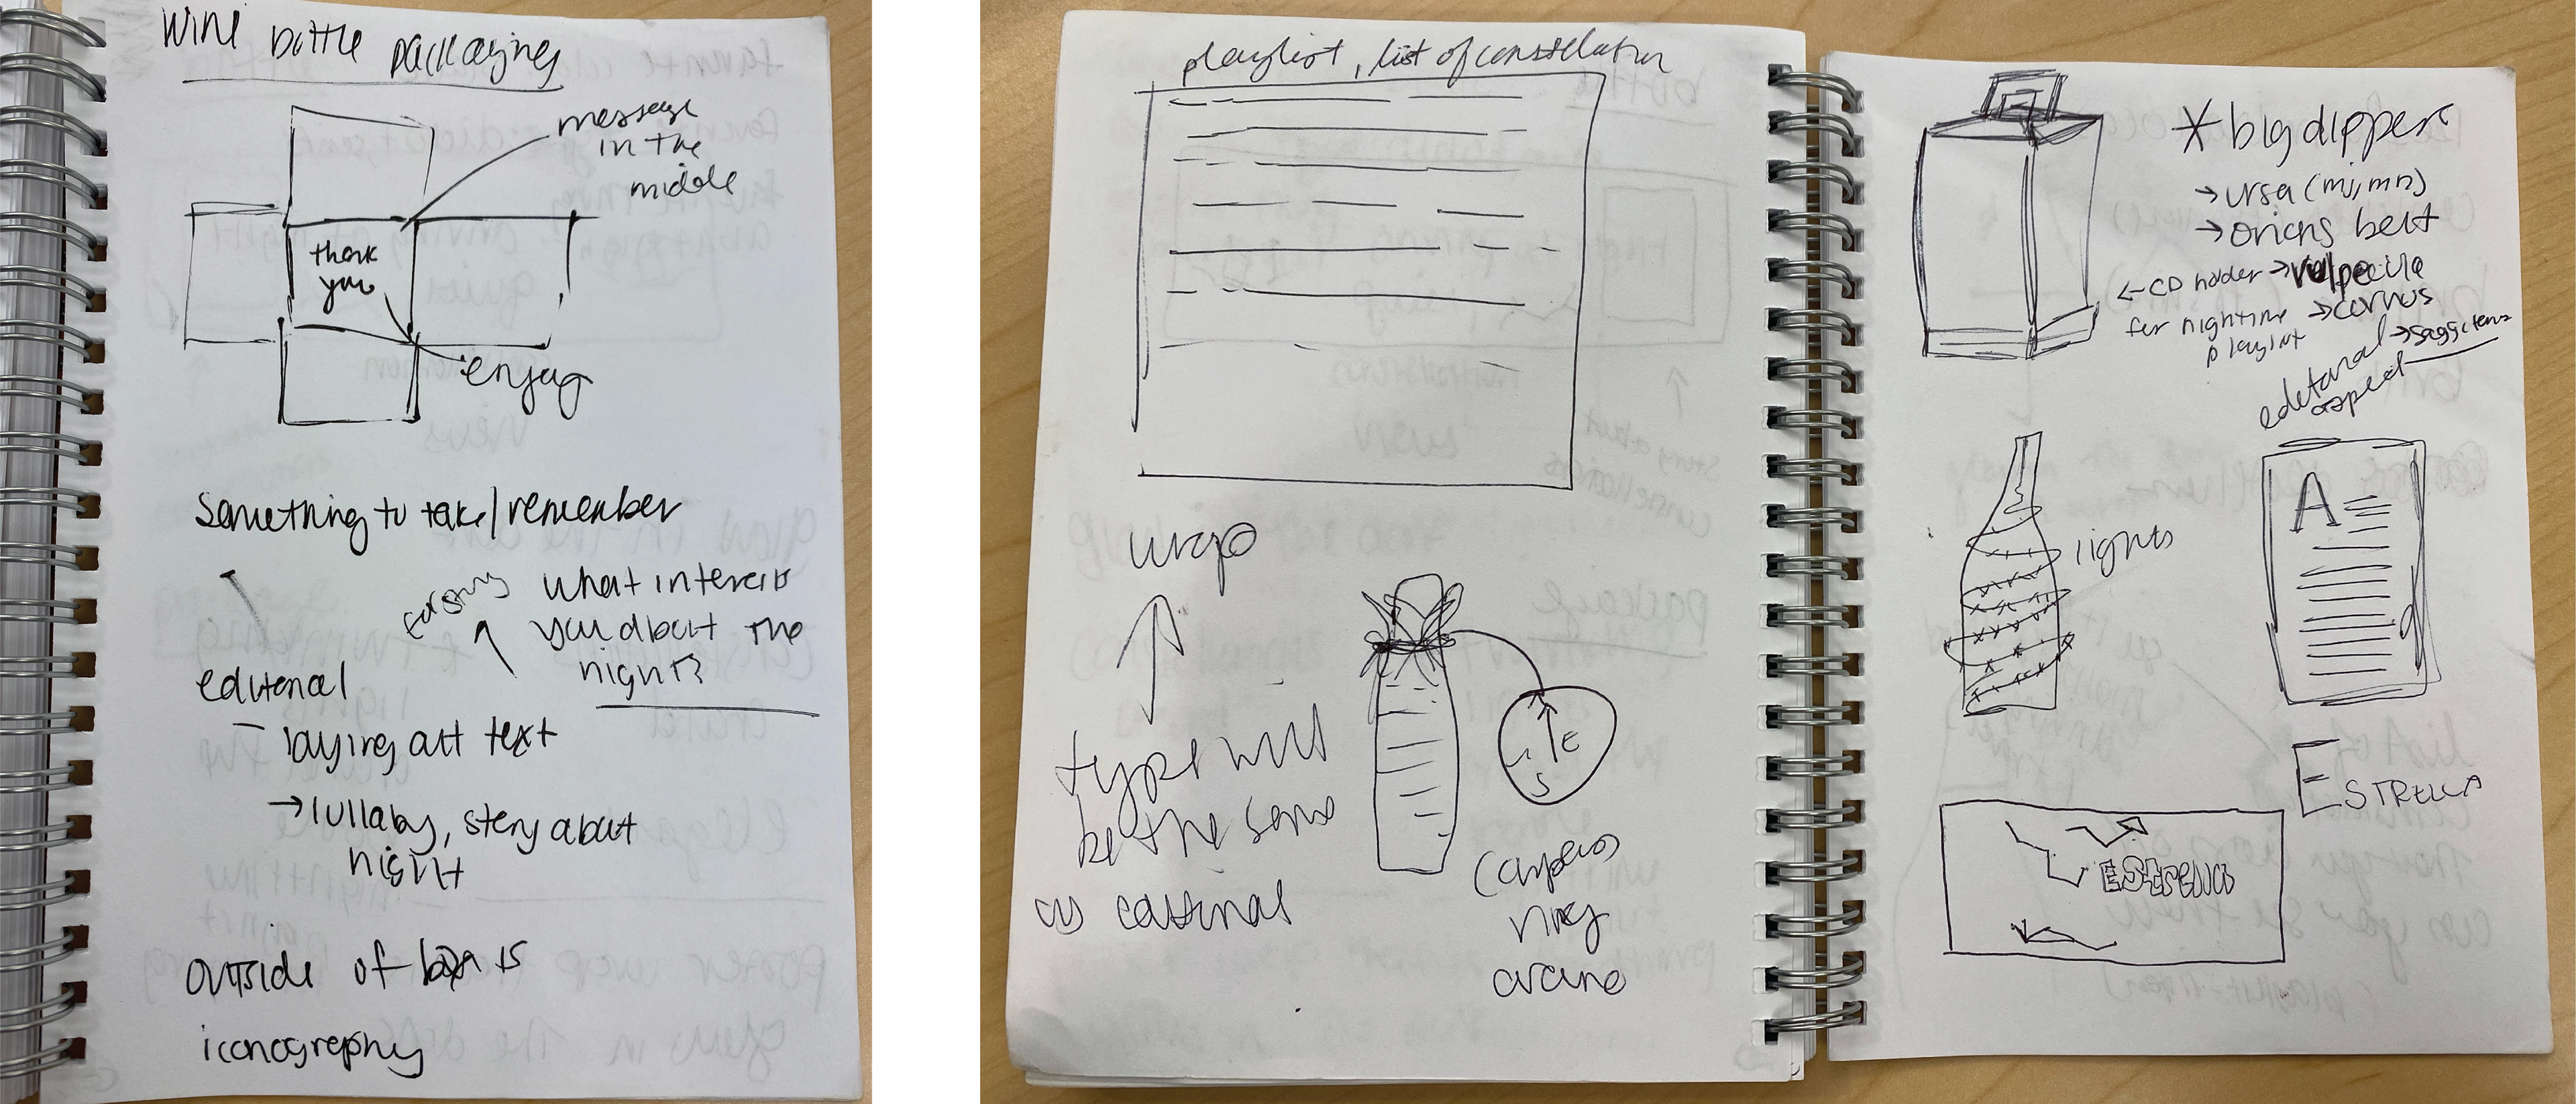 WINE bottle packaging
message
in the
middle
thank
you
enjoy
Something to take/remember
what interests
you about the
night?
editorial
- laying out text
→ lullaby, story about
night
outside of box is
iconography
playlist, list of constelation
wrap
type will
be the same
as
compass
ring
E
S
* big dipper
→ ursa (mj, mn)
→ orions belt
← CD holder → vulpecula
for nightime → corvus
playlist
editorial
aspect
lights
A
ESTRELLA
ESTRELLA